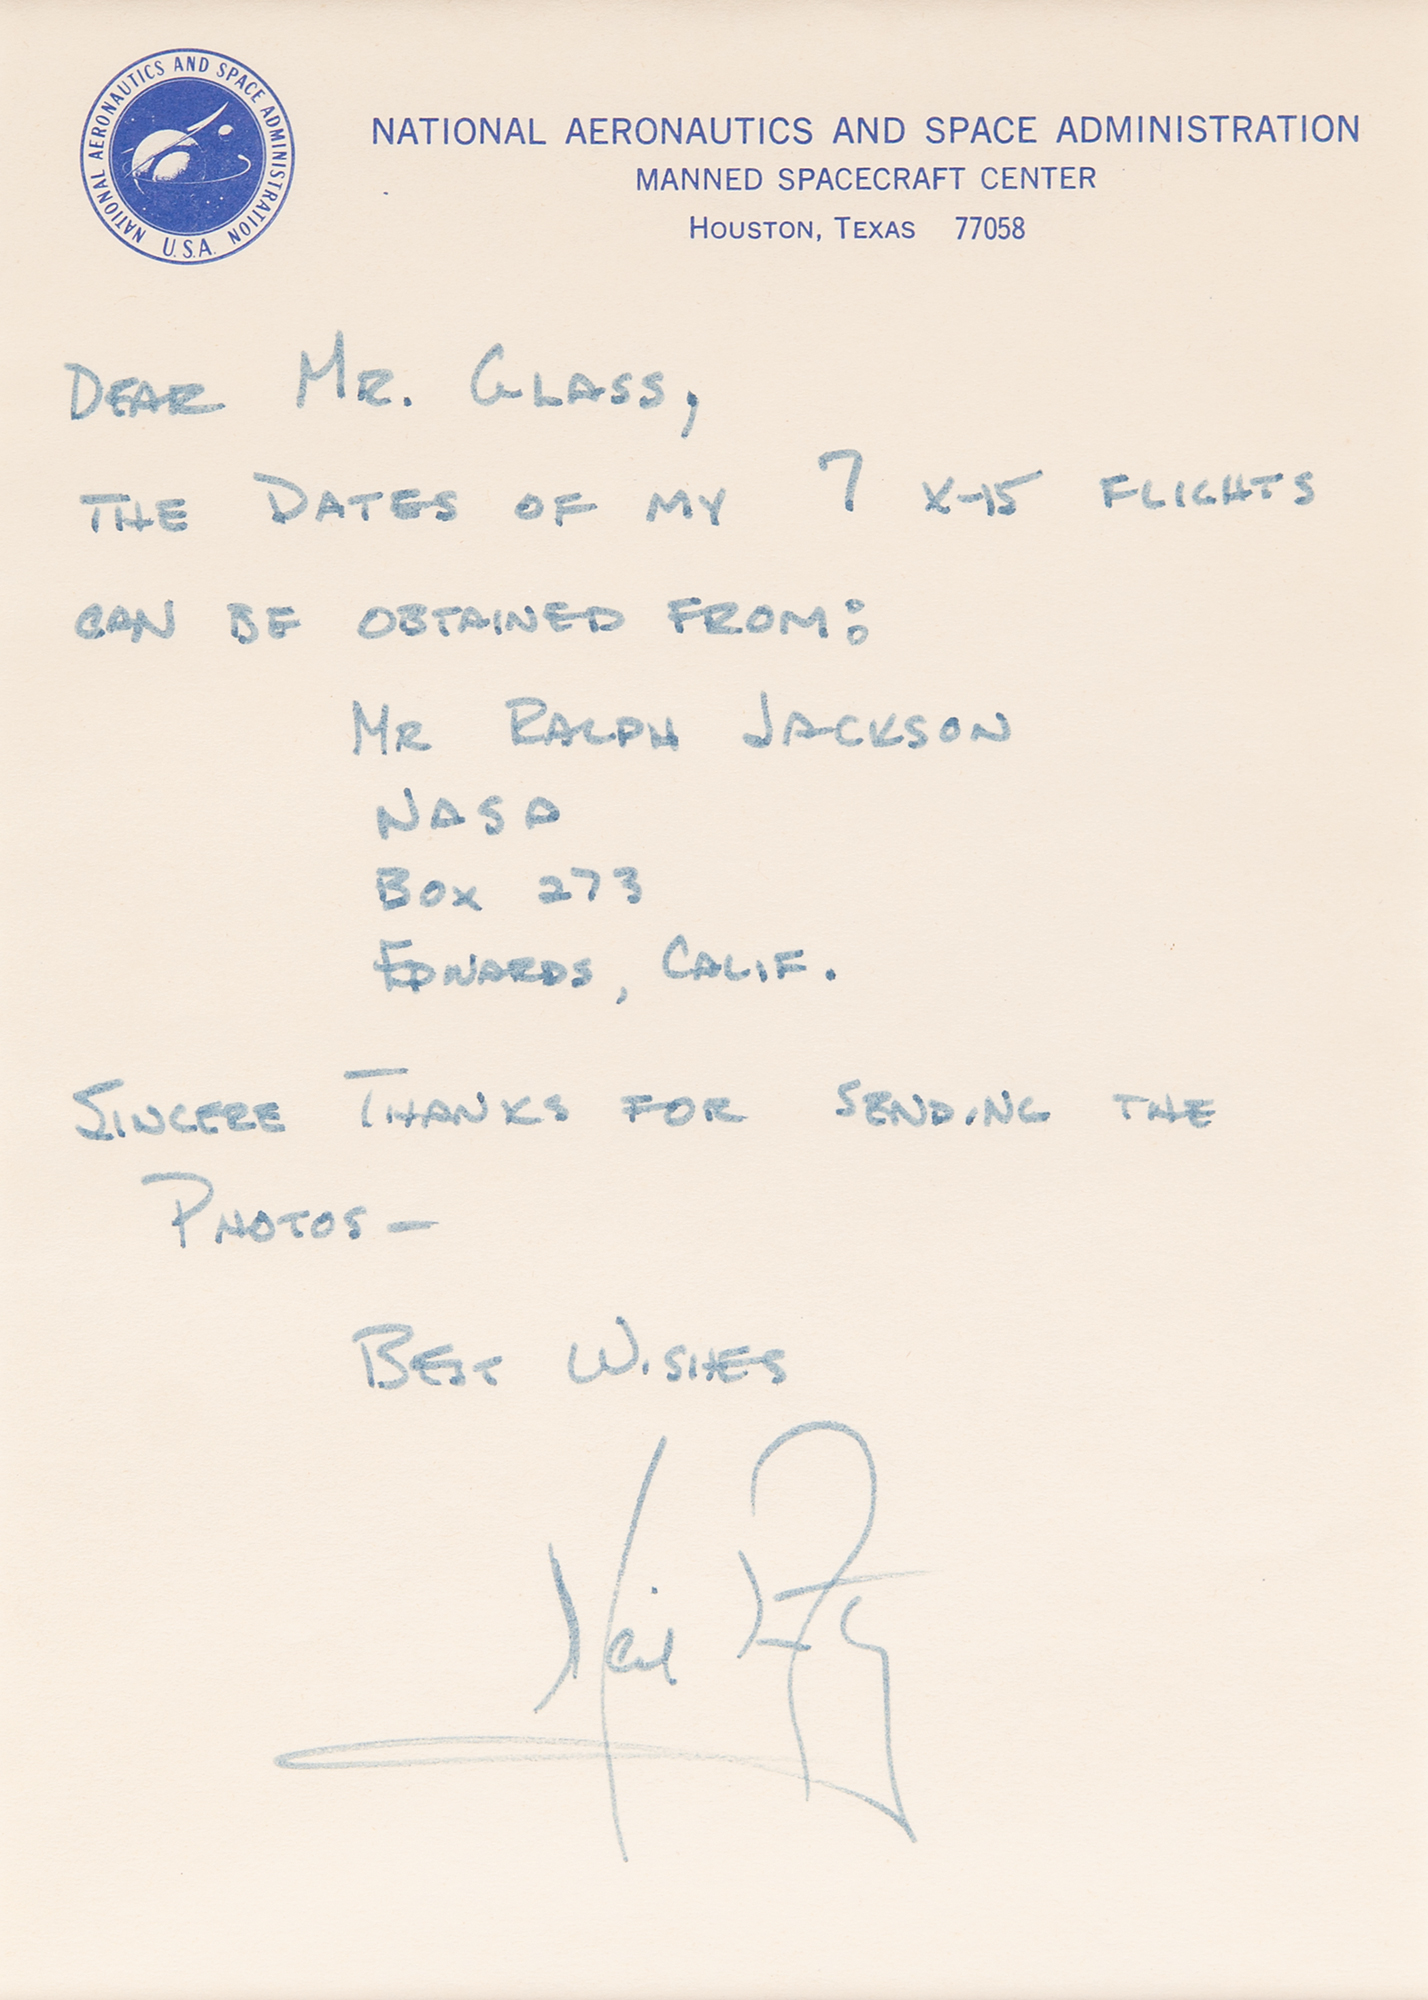 NATIONAL AERONAUTICS AND SPACE ADMINISTRATION
U.S.A.
NATIONAL AERONAUTICS AND SPACE ADMINISTRATION
MANNED SPACECRAFT CENTER
HOUSTON, TEXAS 77058
DEAR MR. GLASS,
THE DATES OF MY 7 X-15 FLIGHTS
CAN BE OBTAINED FROM:
MR RALPH JACKSON
NASA
BOX 273
EDWARDS, CALIF.
SINCERE THANKS FOR SENDING THE
PHOTOS —
BEST WISHES
Neil Armstrong